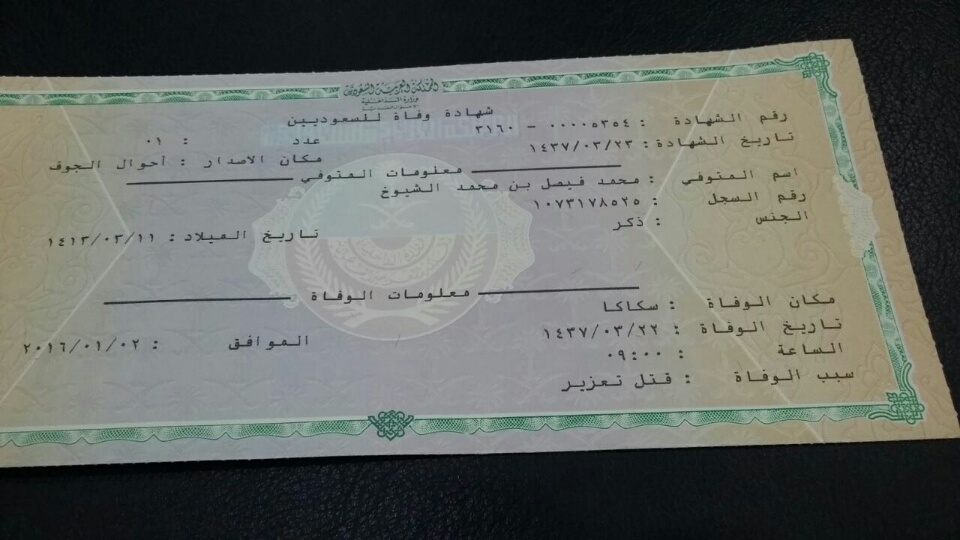 المملكة العربية السعودية
وزارة الداخلية
شهادة وفاة للسعوديين
رقم الشهادة : ٠٠٠٠٥٣٥٤ - ٣١٦٠ عدد : ٠١
تاريخ الشهادة : ١٤٣٧/٠٣/٢٣ مكان الاصدار : أحوال الجوف
معلومات المتوفي
اسم المتوفي : محمد فيصل بن محمد الشيوخ
رقم السجل : ١٠٧٣١٧٨٥٢٥
الجنس : ذكر تاريخ الميلاد : ١٤١٣/٠٣/١١
معلومات الوفاة
مكان الوفاة : سكاكا
تاريخ الوفاة : ١٤٣٧/٠٣/٢٢ الموافق : ٢٠١٦/٠١/٠٢
الساعة : ٠٩:٠٠
سبب الوفاة : قتل تعزير